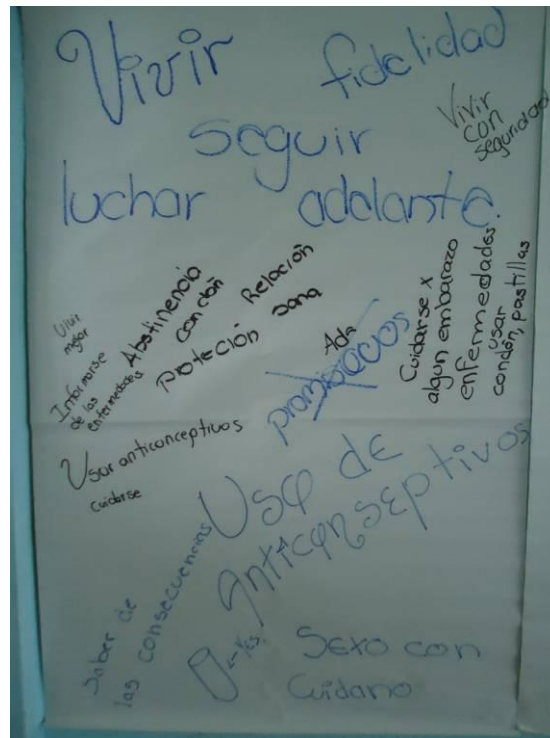 Vivir
fidelidad
seguir
luchar adelante.
Vivir
con
seguridad
Vivir
mejor
Informarse
de las
enfermedades
Abstinencia
condón
Proteción
Relación
sana
Ada
promiscuos
Cuidarse x
algun embarazo
enfermedades
usar
condón, pastillas
Usar anticonceptivos
cuidarse
Uso de
Anticonseptivos
Saber de
las consecuencias
Sexo con
Cuidano